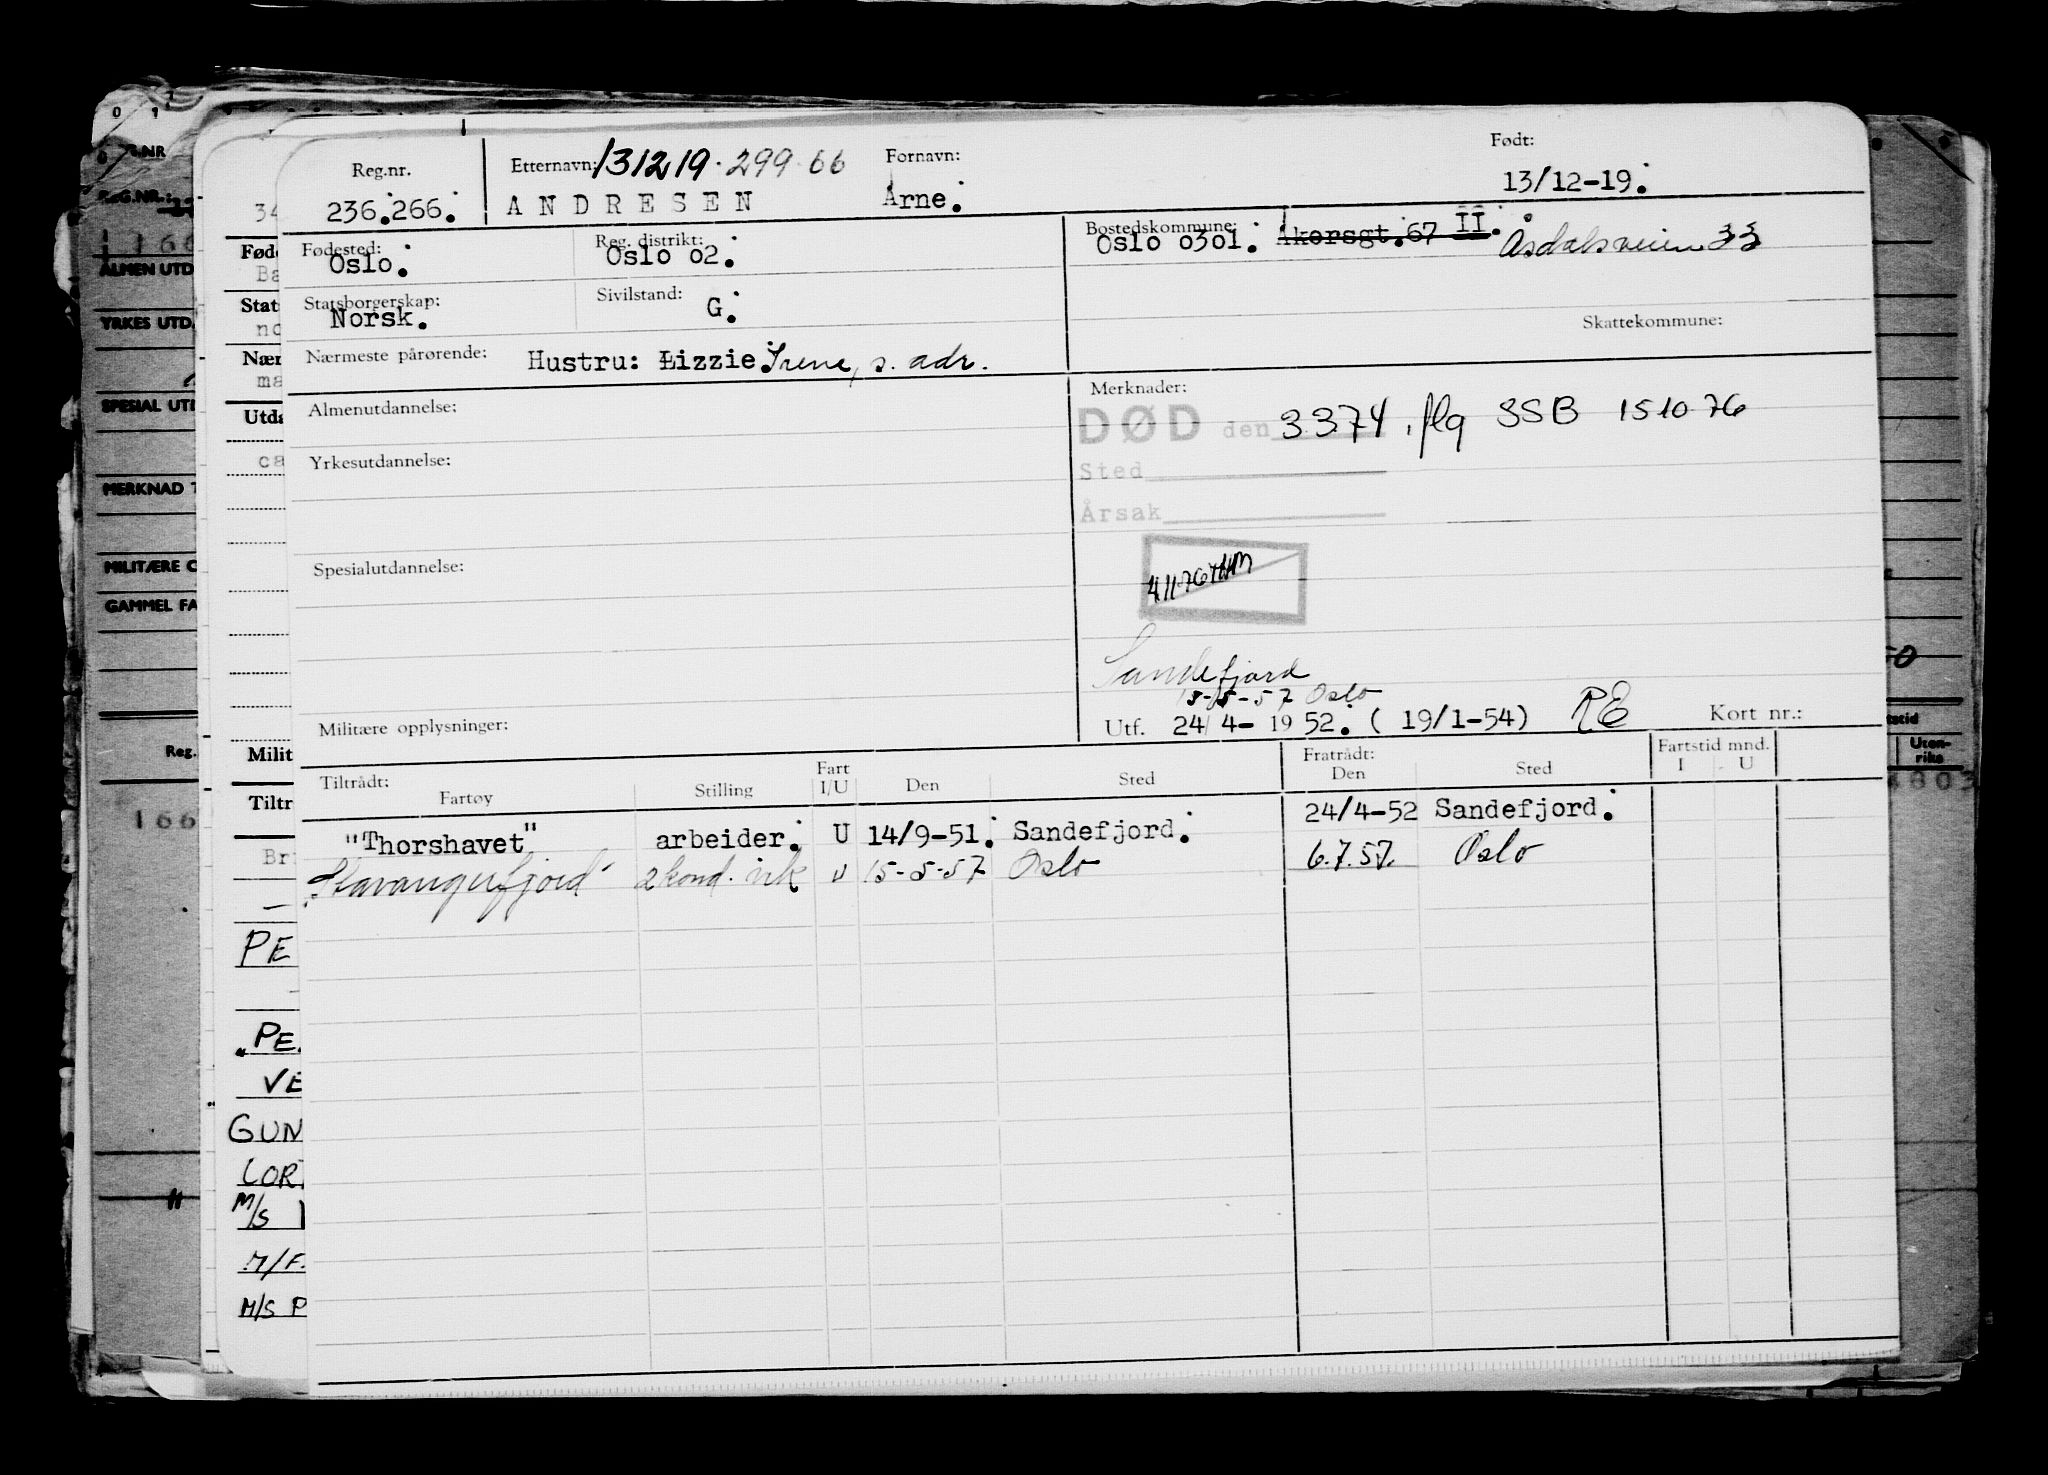 Reg.nr. Etternavn: 131219.299.66 Fornavn: Født:
236.266. ANDRESEN Arne. 13/12-19.
Fødested: Reg. distrikt: Bostedskommune:
Oslo. Oslo 02. Oslo 0301. Akersgt.67 II. Åsdalsveien 33
Statsborgerskap: Sivilstand:
Norsk. G. Skattekommune:
Nærmeste pårørende: Hustru: Lizzie Irene, s. adr.
Almenutdannelse: Merknader:
DØD den 3374, flg SSB 151076
Yrkesutdannelse: Sted
Årsak
Spesialutdannelse: 4.11.76
Sandefjord
15-5-57 Oslo
Militære opplysninger: Utf. 24/4-1952. (19/1-54) RE Kort nr.:
Tiltrådt: Fart Fratrådt: Fartstid mnd.
Fartøy Stilling I/U Den Sted Den Sted I U
"Thorshavet" arbeider. U 14/9-51. Sandefjord. 24/4-52 Sandefjord.
"Stavangerfjord" 2 kond. vik U 15-5-57 Oslo 6.7.57. Oslo
0 1
REG.NR.:
ALMEN UTD
YRKES UTD.
SPESIAL UTD
MERKNAD T
MILITÆRE O
GAMMEL FA
Reg.
166
34
Føde
Ba
Stats
no
Nær
ma
Utda
ca
Milit
Tiltr
Br
PE
"PE
VE
GUN
LOR
M/S
M/F
M/S P
50
tstid
Uten-
riks
803